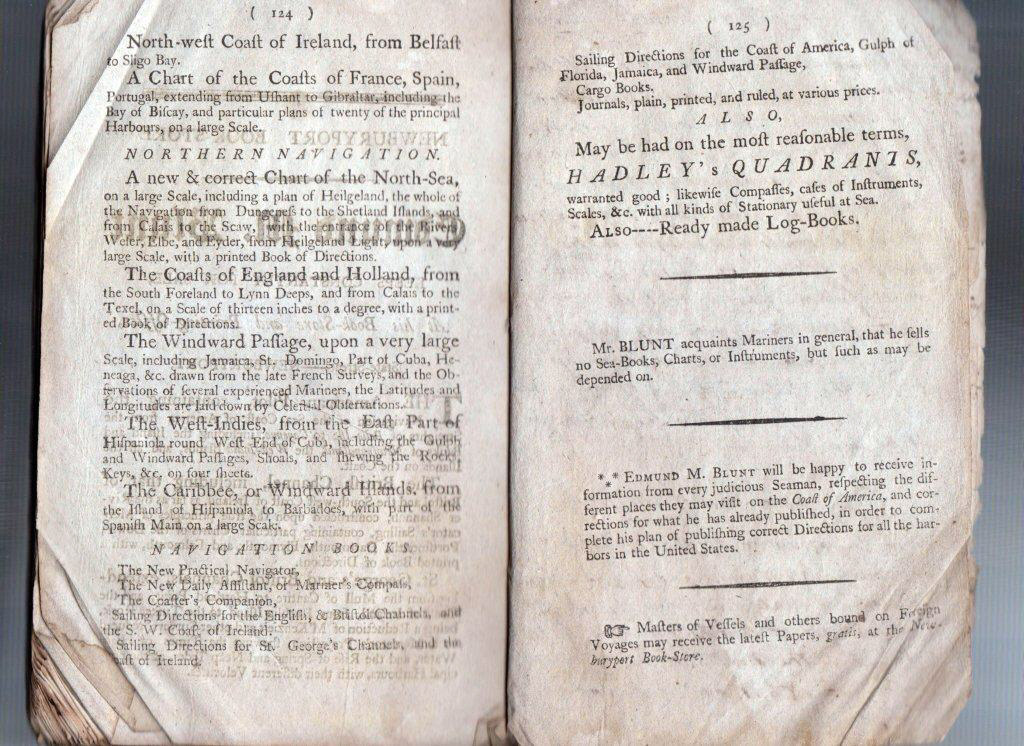 ( 124 )
North-weſt Coaſt of Ireland, from Belfaſt
to Sligo Bay.
A Chart of the Coaſts of France, Spain,
Portugal, extending from Uſhant to Gibraltar, including the
Bay of Biſcay, and particular plans of twenty of the principal
Harbours, on a large Scale.
NORTHERN NAVIGATION.
A new & correct Chart of the North-Sea,
on a large Scale, including a plan of Heilgeland, the whole of
the Navigation from Dungeneſs to the Shetland Iſlands, and
from Calais to the Scaw, with the entrance of the Rivers
Weſer, Elbe, and Eyder, from Heilgeland Light, upon a
large Scale, with a printed Book of Directions.
The Coaſts of England and Holland, from
the South Foreland to Lynn Deeps, and from Calais to the
Texel, on a Scale of thirteen inches to a degree, with a print-
ed Book of Directions.
The Windward Paſſage, upon a very large
Scale, including Jamaica, St. Domingo, Part of Cuba, He-
neaga, &c. drawn from the late French Surveys, and the Ob-
ſervations of ſeveral experienced Mariners, the Latitudes and
Longitudes are laid down by Celeſtial Obſervations.
The Weſt-Indies, from the Eaſt Part of
Hiſpaniola round Weſt End of Cuba, including the Gulph
and Windward Paſſages, Shoals, and ſhewing the Rocks,
Keys, &c. on four ſheets.
The Caribbee, or Windward Iſlands, from
the Iſland of Hiſpaniola to Barbadoes, with part of the
Spaniſh Main on a large Scale.
NAVIGATION BOOKS.
The New Practical Navigator,
The New Daily Aſſiſtant, or Mariner's Compaſs,
The Coaſter's Companion,
Sailing Directions for the Engliſh, & Briſtol Channels, and
the S. W. Coaſt of Ireland.
Sailing Directions for St. George's Channels, and the
of Ireland.
( 125 )
Sailing Directions for the Coaſt of America, Gulph of
Florida, Jamaica, and Windward Paſſage,
Cargo Books.
Journals, plain, printed, and ruled, at various prices.
ALSO,
May be had on the moſt reaſonable terms,
HADLEY's QUADRANTS,
warranted good ; likewiſe Compaſſes, caſes of Inſtruments,
Scales, &c. with all kinds of Stationary uſeful at Sea.
ALSO----Ready made Log-Books.
Mr. BLUNT acquaints Mariners in general, that he ſells
no Sea-Books, Charts, or Inſtruments, but ſuch as may be
depended on.
*** EDMUND M. BLUNT will be happy to receive in-
formation from every judicious Seaman, reſpecting the dif-
ferent places they may viſit on the Coaſt of America, and cor-
rections for what he has already publiſhed, in order to com-
plete his plan of publiſhing correct Directions for all the har-
bors in the United States.
☞ Maſters of Veſſels and others bound on Foreign
Voyages may receive the lateſt Papers, gratis, at the New-
buryport Book-Store.